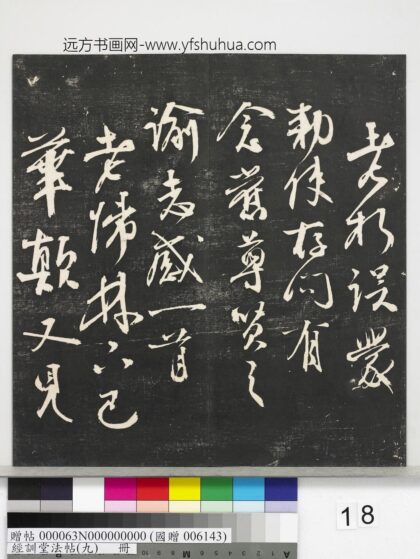 远方书画网-www.yfshuhua.com
老朽誤蒙
勅使存問有
念舊尊賢之
諭志感一首
老歸林下已
華顛又見
18
贈帖 000063N000000000 (國贈 006143)
經訓堂法帖(九) 冊